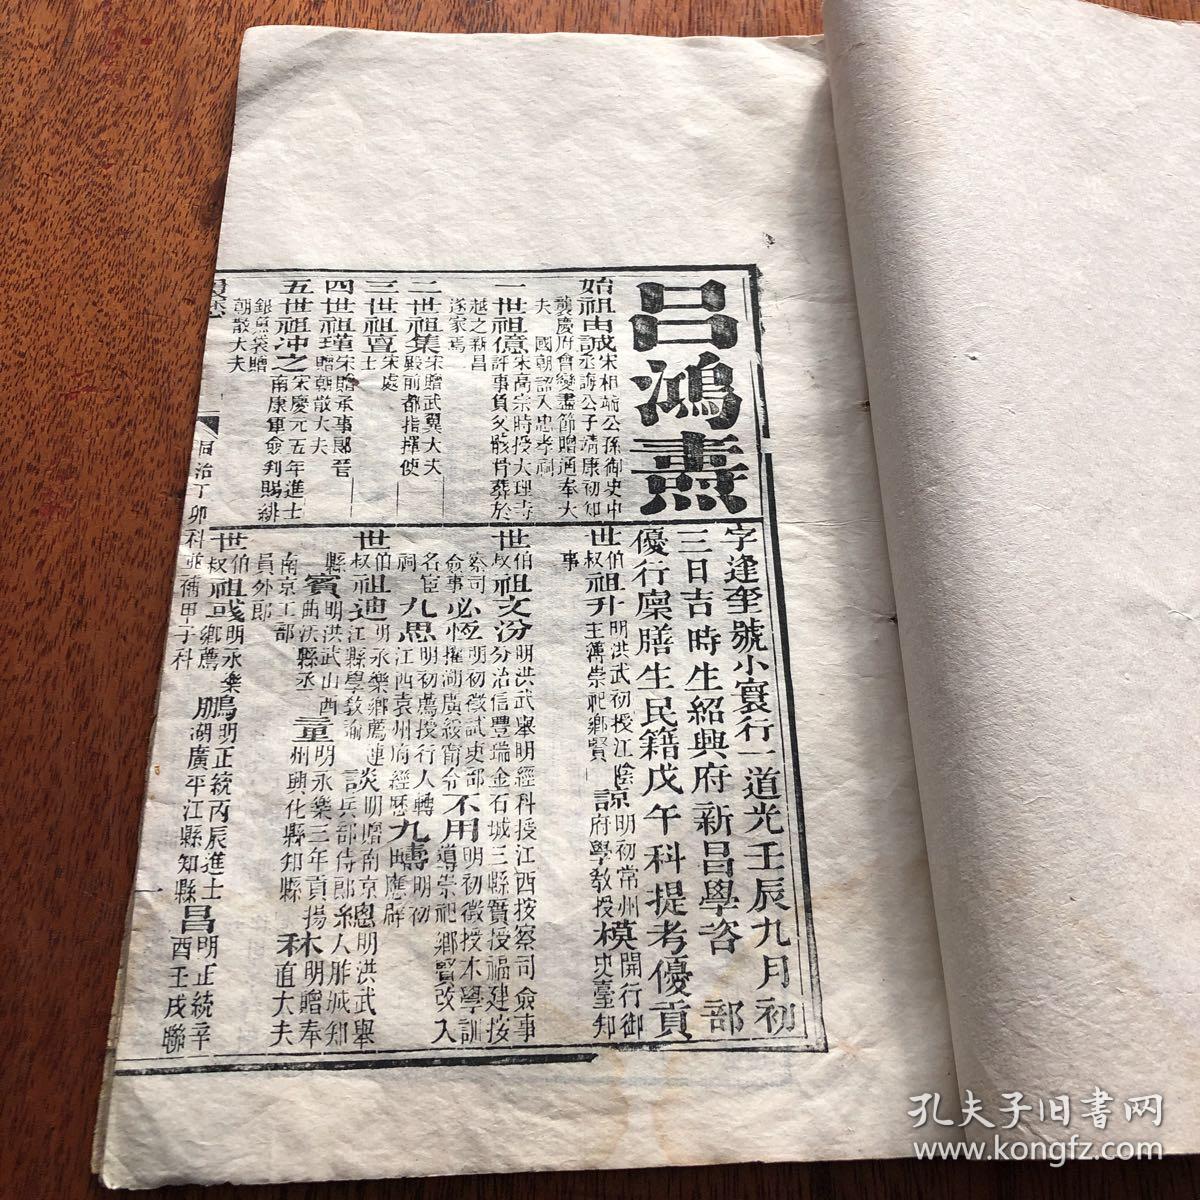 呂鴻燾
字逢奎號小寰行一道光壬辰九月初
三日吉時生紹興府新昌學咨 部
優行廩膳生民籍戊午科提考優貢
始祖由誠宋相端公孫御史中
丞誨公子靖康初知
襲慶府會變盡節贈通奉大
夫 國朝詔入忠孝祠
一世祖億宋高宗時授大理寺
評事負父骸骨葬於
越之新昌
遂家焉
二世祖集宋贈武翼大夫
殿前都指揮使
三世祖亶宋處
士
四世祖瑾宋贈承事郎晉
贈朝散大夫
五世祖冲之宋慶元五年進士
南康軍僉判賜緋
銀魚袋贈
朝散大夫
世伯叔祖升明洪武初授江陰
主薄崇祀鄉賢
諒明初常州
府學教授
模開行御
史臺知
事
世伯叔祖文汾明洪武舉明經科授江西按察司僉事
分治信豐瑞金石城三縣實授福建按
察司
僉事
必恆明初徵試吏部
擢湖廣綏甯令
不用明初徵授本學訓
導崇祀鄉賢改入
名宦
祠
九思明初薦授行人轉
江西袁州府經歷
九疇明初
應辟
世伯叔祖迪明永樂鄉薦連
江縣學教諭
談明贈南京
兵部侍郎
總明洪武舉
人胙城知
縣
賓明洪武山西
曲沃縣丞
童明永樂三年貢揚
州興化縣知縣
秝明贈奉
直大夫
南京工部
員外郎
世伯叔祖彧明永樂
鄉薦
鵬明正統丙辰進士
湖廣平江縣知縣
昌明正統辛
酉壬戌聯
同治丁卯科並補甲子科
一
孔夫子旧书网
www.kongfz.com